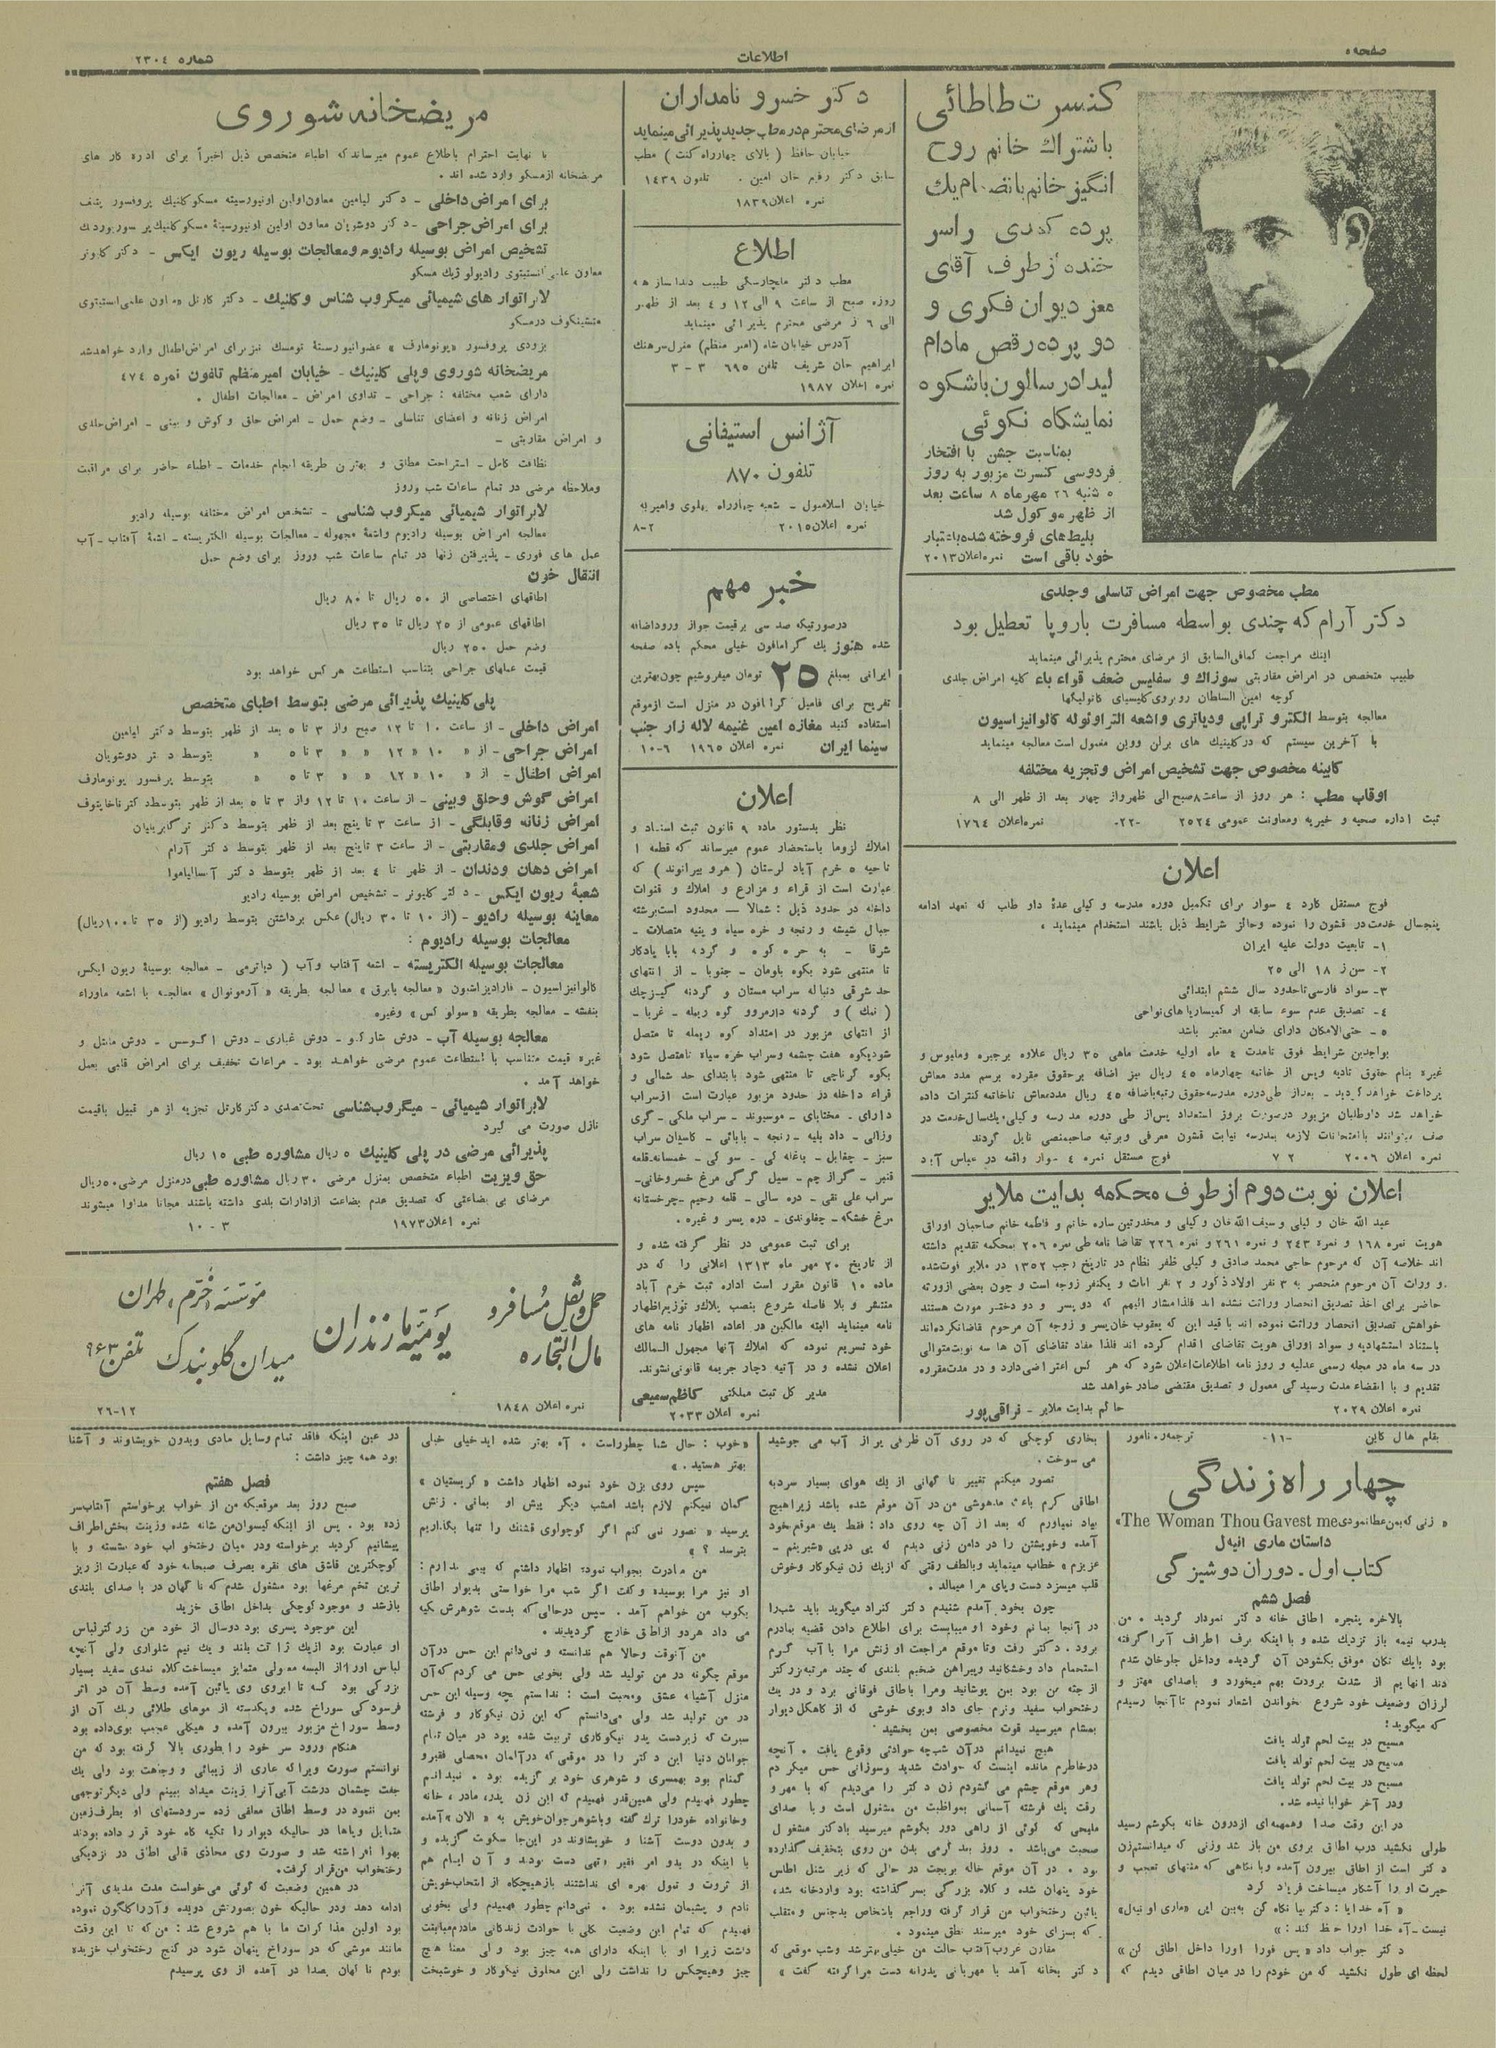 صفحه ۵
اطلاعات
شماره ۲۳۰۴
کنسرت طاطائی
باشتراك خانم روح
انگیز خانم بانضمام یك
پرده کمدی سراسر
خنده از طرف آقای
معز دیوان فکری و
دو پرده رقص مادام
لیدا در سالون باشکوه
نمایشگاه نکوئی
بمناسبت جشن با افتخار
فردوسی کنسرت مزبور به روز
۵ شنبه ۲۶ مهرماه ۸ ساعت بعد
از ظهر موکول شد
بلیط های فروخته شده باعتبار
خود باقی است نمره اعلان ۲۰۱۳
مطب مخصوص جهت امراض تناسلی وجلدی
دکتر آرام که چندی بواسطه مسافرت باروپا تعطیل بود
اینك مراجعت کمافی السابق از مرضای محترم پذیرائی مینماید
طبیب متخصص در امراض مقاربتی سوزاك و سفلیس ضعف قواء باء کلیه امراض جلدی
کوچه امین السلطان روبروی کلیسیای کاتولیکها
معالجه بتوسط الکترو تراپی ودیاتری واشعه التراوئوله کالوانیزاسیون
با آخرین سیستم که در کلینیك های برلن ووین معمول است معالجه مینماید
کابینه مخصوص جهت تشخیص امراض وتجزیه مختلفه
اوقاب مطب : هر روز از ساعت ۸ صبح الی ظهر واز چهار بعد از ظهر الی ۸
ثبت اداره صحیه و خیریه ومعاونت عمومی ۲۵۲۴ -۲۲- نمره اعلان ۱۷۶۴
اعلان
فوج مستقل کارد ٤ سوار برای تکمیل دوره مدرسه و کیلی عدهٔ دار طلب که تعهد ادامه
پنجسال خدمت در قشون را نموده وحائز شرایط ذیل باشند استخدام مینماید ،
۱- تابعیت دولت علیه ایران
۲- سن از ۱۸ الی ۲۵
۳- سواد فارسی تاحدود سال ششم ابتدائی
٤- تصدیق عدم سوء سابقه از کمیساریا های نواحی
۵- حتی الامکان دارای ضامن معتبر باشد
بواجدین شرایط فوق تامدت ٤ ماه اولیه خدمت ماهی ۳۵ ریال علاوه برجیره وملبوس و
غیره بنام حقوق تادیه وپس از خاتمه چهارماه ٤۵ ریال نیز اضافه برحقوق مقرره برسم مدد معاش
پرداخت خواهد گردید - بعداز طی دوره مدرسه حقوق رتبه باضافه ٤۵ ریال مددمعاش تاخاتمه کنترات داده
خواهد شد داوطلبان مزبور درصورت بروز استعداد پس از طی دوره مدرسه و کیلی - یك سال خدمت در
صف میتوانند با امتحانات لازمه بمدرسه نیابت قشون معرفی وبرتبه صاحبمنصبی نایل گردند
نمره اعلان ۲۰۰۶ ۲ ۷ فوج مستقل نمره ٤ سوار واقعه در عباس آباد
اعلان نوبت دوم از طرف محکمه بدایت ملایر
عبد الله خان و کیلی و سیف الله خان و کیلی و مخدرتین ساره خانم و فاطمه خانم صاحبان اوراق
هویت نمره ۱۶۸ و نمره ۲٤۳ و نمره ۲۶۱ و نمره ۲۲۶ تقاضا نامه طی نمره ۲۰۶ بمحکمه تقدیم داشته
اند خلاصه آن که مرحوم حاجی محمد صادق و کیلی ظفر نظام در تاریخ رجب ۱۳۵۲ در ملایر فوت شده
و وراث آن مرحوم منحصر به ۳ نفر اولاد ذکور و ۲ نفر اناث و یکنفر زوجه است و چون بعضی از ورثه
حاضر برای اخذ تصدیق انحصار وراثت نشده اند فلذا مشار الیهم که دو پسر و دو دختر مورث هستند
خواهش تصدیق انحصار وراثت نموده اند با قید این که یعقوب خان پسر و زوجه آن مرحوم تقاضا نکرده اند
باستناد استشهادیه و سواد اوراق هویت تقاضای اقدام کرده اند فلذا مفاد تقاضای آن ها سه نوبت متوالی
در سه ماه در مجله رسمی عدلیه و روز نامه اطلاعات اعلان شود که هر کس اعتراضی دارد و در مدت مقرره
تقدیم و با انقضاء مدت رسیدگی معمول و تصدیق مقتضی صادر خواهد شد
نمره اعلان ۲۰۲۹ حاکم بدایت ملایر - فراقی پور
دکتر خسرو نامداران
از مرضای محترم در مطب جدید پذیرائی مینماید
خیابان حافظ ( بالای چهارراه کنت ) مطب
سابق دکتر رفیع خان امین . تلفون ۱٤۳۹
نمره اعلان ۱۸۳۹
اطلاع
مطب دکتر ماچارسکی طبیب دندانساز همه
روزه صبح از ساعت ۹ الی ۱۲ و ٤ بعد از ظهر
الی ۶ از مرضی محترم پذیرائی مینماید
آدرس خیابان شاه (امیر منظم) منزل سرهنك
ابراهیم خان شریف تلفن ۶۹۵ ۳ - ۳
نمره اعلان ۱۹۸۷
آژانس استیفانی
تلفون ۸۷۰
خیابان اسلامبول - شعبه چهارراه پهلوی وامیریه
نمره اعلان ۲۰۱۵ ۲-۸
خبر مهم
درصورتیکه صد سی برقیمت جواز ورود اضافه
شده هنوز یك کرامافون خیلی محکم باده صفحه
ایرانی بمبلغ ۲۵ تومان میفروشیم چون بهترین
تفریح برای فامیل گرافون در منزل است ازموقع
استفاده کنید مغازه امین غنیمه لاله زار جنب
سینما ایران نمره اعلان ۱۹۶۵ ۶-۱۰
اعلان
نظر بدستور ماده ۹ قانون ثبت اسناد و
املاك لزوما باستحضار عموم میرساند که قطعه ۱
ناحیه ۵ خرم آباد لرستان ( هرو بیرانوند ) که
عبارت است از قراء و مزارع و املاك و قنوات
داخله در حدود ذیل : شمالا — محدود است برشته
جبال شیشه و رنجه و خره سیاه و بنیه متصلات -
شرقا - به حره کوه و گردنه بابا یادکار
تا منتهی شود بکوه باومان - جنوبا - از انتهای
حد شرقی دنباله سراب مستان و گردنه گیزچك
( نمك ) و گردنه دارمروو کوه ریمله - غربا -
از انتهای مزبور در امتداد کوه ریمله تا متصل
شود بکوه هفت چشمه وسراب خره سیاه تا متصل شود
بکوه گرناچی تا منتهی شود بابتدای حد شمالی و
قراء داخله در حدود مزبور عبارت است از سراب
دارای - مختابای - موسیوند - سراب ملکی - گری
وزانی - داد بلیه - رنجه - بابائی - کاسیان سراب
سبز - چغابل - باغله کی - سو کی - خمسانه قلعه
قنبر - گراز چم - سیل گرگی مرغ خسروخانی -
سراب علی نقی - دره سالی - قلعه رحیم - چرخستانه
مرغ خشکه - چغاوندی - دره بسر و غیره .
برای ثبت عمومی در نظر گرفته شده و
از تاریخ ۲۰ مهر ماه ۱۳۱۳ اعلانی را که در
ماده ۱۰ قانون مقرر است اداره ثبت خرم آباد
منتشر و بلا فاصله شروع بنصب پلاك و توزیع اظهار
نامه مینماید البته مالکین در اعاده اظهار نامه های
خود تسریع نموده که املاك آنها مجهول المالك
اعلان نشده و در آتیه دچار جریمه قانونی نشوند.
مدیر کل ثبت مملکتی کاظم سمیعی
نمره اعلان ۲۰۳۳
مریضخانه شوروی
با نهایت احترام باطلاع عموم میرساند که اطباء متخصص ذیل اخیراً برای اداره کار های
مریضخانه از مسکو وارد شده اند .
برای امراض داخلی - دکتر لیامین معاون اولین اونیورسیته مسکو کلینیك پروفسور پلتنف
برای امراض جراحی - دکتر دوشویان معاون اولین اونیورسیتهٔ مسکو کلینیك
تشخیص امراض بوسیله رادیوم ومعالجات بوسیله ریون ایکس - دکتر کلیونر
معاون علمی انستیتوی رادیولوژیك مسکو
لابراتوار های شیمیائی میکروب شناس وکلنیك - دکتر کارتل معاون علمی انستیتوی
متشینکوف درمسکو
بزودی پروفسور «یونومارف» عضو انیورسیتهٔ تومسك نیز برای امراض اطفال وارد خواهدشد
مریضخانه شوروی وپلی کلینیك - خیابان امیر منظم تلفون نمره ٤۷٤
دارای شعب مختلفه : جراحی - تداوی امراض - معالجات اطفال .
امراض زنانه و اعضای تناسلی - وضع حمل - امراض حلق و گوش و بینی - امراض جلدی
و امراض مقاربتی -
نظافت کامل - استراحت مطلق و بهترین طریقه انجام خدمات - اطباء حاضر برای مراقبت
وملاحظه مرضی در تمام ساعات شب وروز
لابراتوار شیمیائی میکروب شناسی - تشخص امراض مختلفه بوسیله رادیو
معالجه امراض بوسیله رادیوم واشعهٔ مجهوله - معالجات بوسیله الکتریسته - اشعهٔ آفتاب - آب
عمل های فوری - پذیرفتن زنها در تمام ساعات شب وروز برای وضع حمل
انتقال خون
اطاقهای اختصاصی از ۵۰ ریال تا ۸۰ ریال
اطاقهای عمومی از ۲۵ ریال تا ۳۵ ریال
وضع حمل ۲۵۰ ریال
قیمت عملهای جراحی بتناسب استطاعت هر کس خواهد بود
پلی کلینیك پذیرائی مرضی بتوسط اطبای متخصص
امراض داخلی - از ساعت ۱۰ تا ۱۲ صبح واز ۳ تا ۵ بعد از ظهر بتوسط دکتر لیامین
امراض جراحی - از « ۱۰ « ۱۲ « « ۳ تا ۵ « بتوسط دکتر دوشویان
امراض اطفال - از « ۱۰ « ۱۲ « « ۳ تا ۵ « بتوسط پرفسور یونومارف
امراض گوش وحلق وبینی - از ساعت ۱۰ تا ۱۲ واز ۳ تا ۵ بعد از ظهر بتوسط دکتر ناخایتوف
امراض زنانه وقابلگی - از ساعت ۳ تا پنج بعد از ظهر بتوسط دکتر ترگابریلیان
امراض جلدی ومقاربتی - از ساعت ۳ تا پنج بعد از ظهر بتوسط دکتر آرام
امراض دهان ودندان - از ظهر تا ٤ بعد از ظهر بتوسط دکتر آسالیاموا
شعبهٔ ریون ایکس - دکتر کلیونر - تشخیص امراض بوسیله رادیو
معاینه بوسیله رادیو - (از ۱۰ تا ۳۰ ریال) عکس برداشتن بتوسط رادیو (از ۳۵ تا ۱۰۰ ریال)
معالجات بوسیله رادیوم :
معالجات بوسیله الکتریسته - اشعه آفتاب وآب ( دیاترمی - معالجه بوسیلهٔ ریون ایکس
کالوانیزاسیون - فارادیزاسیون «معالجه بابرق» معالجه بطریقه «آرسونوال» معالجه با اشعه ماوراء
بنفشه - معالجه بطریقه «سولو کس» وغیره
معالجه بوسیله آب - دوش شارکو - دوش غباری - دوش اکوسس - دوش مایل و
غیره قیمت متناسب با استطاعت عموم مرضی خواهد بود - مراعات تخفیف برای امراض قلبی بعمل
خواهد آمد .
لابراتوار شیمیائی - میکروب شناسی تحت تصدی دکتر کارتل تجزیه از هر قبیل باقیمت
نازل صورت می گیرد
پذیرائی مرضی در پلی کلینیك ۵ ریال مشاوره طبی ۱۵ ریال
حق ویزیت اطباء متخصص بمنزل مرضی ۳۰ ریال مشاوره طبی درمنزل مرضی ۵۰ ریال
مرضای بی بضاعتی که تصدیق عدم بضاعت از ادارات بلدی داشته باشند مجانا مداوا میشوند
نمره اعلان ۱۹۷۳ ۳ - ۱۰
حمل و نقل مسافر و
مال التجاره
یومیه مازندران
موسسه اخترم ، طهران
میدان گلوبندك تلفن ۹۶۳
نمره اعلان ۱۸٤۸ ۱۲-۲۶
بقلم هال کاین -۱۱- ترجمه ر. نامور
چهار راه زندگی
« زنی که بمن عطا نمودی The Woman Thou Gavest me»
داستان ماری انیل
کتاب اول - دوران دوشیزگی
فصل ششم
بالاخره پنجره اطاق خانه دکتر نمودار گردید . من
بدرب نیمه باز نزدیك شده و با اینکه برف اطراف آنرا گرفته
بود بایك تکان موفق بگشودن آن گردیده وداخل جلوخان شدم
دندانهایم از شدت برودت بهم میخورد و باصدای مهتز و
لرزان وضعیف خود شروع بخواندن اشعار نمودم تا آنجا رسیدم
که میگوید :
مسیح در بیت لحم تولد یافت
مسیح در بیت لحم تولد یافت
مسیح در بیت لحم تولد یافت
ودر آخر خوابانیده شد .
در این وقت صدا وهمهمه ای ازدرون خانه بگوشم رسید
طولی نکشید درب اطاق بروی من باز شد وزنی که میدانستم زن
دکتر است از اطاق بیرون آمده وبا نگاهی که منتهای تعجب و
حیرت او را آشکار میساخت فریاد کرد
« آه خدایا : دکتر بیا نگاه کن به بین این «ماری اونیل»
نیست - آه خدا اورا حفظ کند : »
دکتر جواب داد «پس فورا اورا داخل اطاق کن »
لحظه ای طول نکشید که من خودم را در میان اطاقی دیدم که
بخاری کوچکی که در روی آن ظرفی پر از آب می جوشید
می سوخت .
تصور میکنم تغییر نا گهانی از یك هوای بسیار سرد به
اطاقی گرم باعث مدهوشی من در آن موقع شده باشد زیرا هیچ
بیاد نمیاورم که بعد از آن چه روی داد : فقط یك موقع بخود
آمده وخویشتن را در دامن زنی دیدم که پی در پی «شیرینم -
عزیزم » خطاب مینماید وبالطف رقتی که ازیك زن نیکوکار وخوش
قلب میسزد دست وپای مرا میمالد .
چون بخود آمدم شنیدم دکتر کنراد میگوید باید شب را
در آنجا بمانم وخود او میبایست برای اطلاع دادن قضیه بمادرم
برود . دکتر رفت وتا موقع مراجعت او زنش مرا با آب گرم
استحمام داد وخشکانید وپیراهن ضخیم بلندی که چند مرتبه بزرگتر
از جثه من بود بمن پوشانید ومرا باطاق فوقانی برد و در یك
رختخواب سفید ونرم جای داد وبوی خوشی که از کاهگل دیوار
بمشام میرسید قوت مخصوصی بمن بخشید .
هیچ نمیدانم درآن شب چه حوادثی وقوع یافت . آنچه
در خاطرم مانده اینست که حرارت شدید وسوزانی حس میکردم
وهر موقع چشم می گشودم زن دکتر را میدیدم که با مهر و
رقت یك فرشته آسمانی بمواظبت من مشغول است وبا صدای
ملیحی که گوئی از راهی دور بگوشم میرسید بادکتر مشغول
صحبت میباشد . روز بعد گرمی بدن من روی بتخفیف گذارده
بود . در آن موقع خاله بریجت در حالی که زیر شنل اطلس
خود پنهان شده و کلاه بزرگی بسر گذاشته بود واردخانه شده
پائین رختخواب من قرار گرفته وراجم باشخاص بدجنس و متقلب
که بسزای خود میرسند نطق مینمود .
مقارن غروب آفتاب حالت من خیلی بهتر شد وشب موقعی که
دکتر بخانه آمد با مهربانی پدرانه دست مرا گرفته گفت «
«خوب : حال شما چطوراست . آه بهتر شده اید خیلی خیلی
بهتر هستید . »
سپس روی بزن خود نموده اظهار داشت « کریستیان »
گمان نمیکنم لازم باشد امشب دیگر پیش او بمانی . زنش
پرسید « تصور نمی کنم اگر کوچولوی قشنك را تنها بگذاریم
بترسد ؟ »
من مبادرت بجواب نموده اظهار داشتم که بیمی ندارم :
او نیز مرا بوسیده وگفت اگر شب مرا خواستی بدیوار اطاق
بکوب من خواهم آمد . سپس درحالی که بدست شوهرش تکیه
می داد هردو از اطاق خارج گردیدند .
من آنوقت وحالا هم ندانسته و نمیدانم این حس درآن
موقع چگونه در من تولید شد ولی بخوبی حس می کردم که آن
منزل آشیانه عشق ومحبت است : ندانستم بچه وسیله این حس
در من تولید شد ولی می دانستم که این زن نیکوکار و فرشته
سیرت که زبردست پدر نیکوکاری تربیت شده بود در میان تمام
جوانان دنیا این دکتر را در موقعی که در آلمان محصلی فقیر و
گمنام بود بهمسری و شوهری خود بر گزیده بود . نمیدانم
چطور فهمیدم ولی همین قدر فهمیدم که این زن پدر ، مادر ، خانه
وخانواده خودرا ترك گفته وباشوهر جوان خویش به « الان » آمده
و بدون دوست آشنا و خویشاوند در این جا سکونت گزیده و
با اینکه در بدو امر فقیر و تهی دست بودند و آن ایام هم
از ثروت و تمول بهره ای نداشتند بازهیچکاه از انتخاب خویش
نادم و پشیمان نشده بود . نمی دانم چطور فهمیدم ولی بخوبی
فهمیدم که تمام این وضعیت کلی با حوادث زندگانی مادرم مباینت
داشت زیرا او با اینکه دارای همه چیز بود ولی معنا هیچ
چیز وهیچکس را نداشت ولی این مخلوق نیکوکار و خوشبخت
در عین اینکه فاقد تمام وسایل مادی وبدون خویشاوند و آشنا
بود همه چیز داشت :
فصل هفتم
صبح روز بعد موقعیکه من از خواب برخواستم آفتاب سر
زده بود . پس از اینکه کیسوان من شانه شده وزینت بخش اطراف
پیشانیم گردید برخواسته ودر میان رختخواب خود نشسته و با
کوچکترین قاشق های نقره بصرف صبحانه خود که عبارت از ریز
ترین تخم مرغها بود مشغول شدم که نا گهان در با صدای بلندی
بازشد و موجود کوچکی بداخل اطاق خزید
این موجود پسری بود دوسال از خود من بزرگتر لباس
او عبارت بود از یك ژاکت بلند و یك نیم شلواری ولی آنچه
لباس اورا از البسه معمولی متمایز میساخت کلاه نمدی سفید بسیار
بزرگی بود که تا ابروی وی پائین آمده وسط آن در اثر
فرسودگی سوراخ شده ویکدسته از موهای طلائی رنك آن از
وسط سوراخ مزبور بیرون آمده و هیکلی عجیب بوی داده بود
هنگام ورود سر خود را بطوری بالا گرفته بود که من
توانستم صورت ویرا که عاری از زیبائی و وجاهت بود ولی یك
جفت چشمان درشت آبی آنرا زینت میداد ببینم ولی دیگر توجهی
بمن ننمود در وسط اطاق معلقی زده سرودستهای او بطرف زمین
متمایل وپاها در حالیکه دیوار را تکیه گاه خود قرار داده بودند
بهوا افراشته شد و صورت وی محاذی قالی اطاق در نزدیکی
رختخواب من قرار گرفت .
در همین وضعیت که گوئی می خواست مدت مدیدی آنرا
ادامه دهد ودر حالیکه خون بصورتش دویده وآنرا گلگون نموده
بود اولین مذاکرات ما با هم شروع شد : من که تا این وقت
مانند موشی که در سوراخ پنهان شود در کنج رختخواب خزیده
بودم نا گهان بصدا در آمده از وی پرسیدم